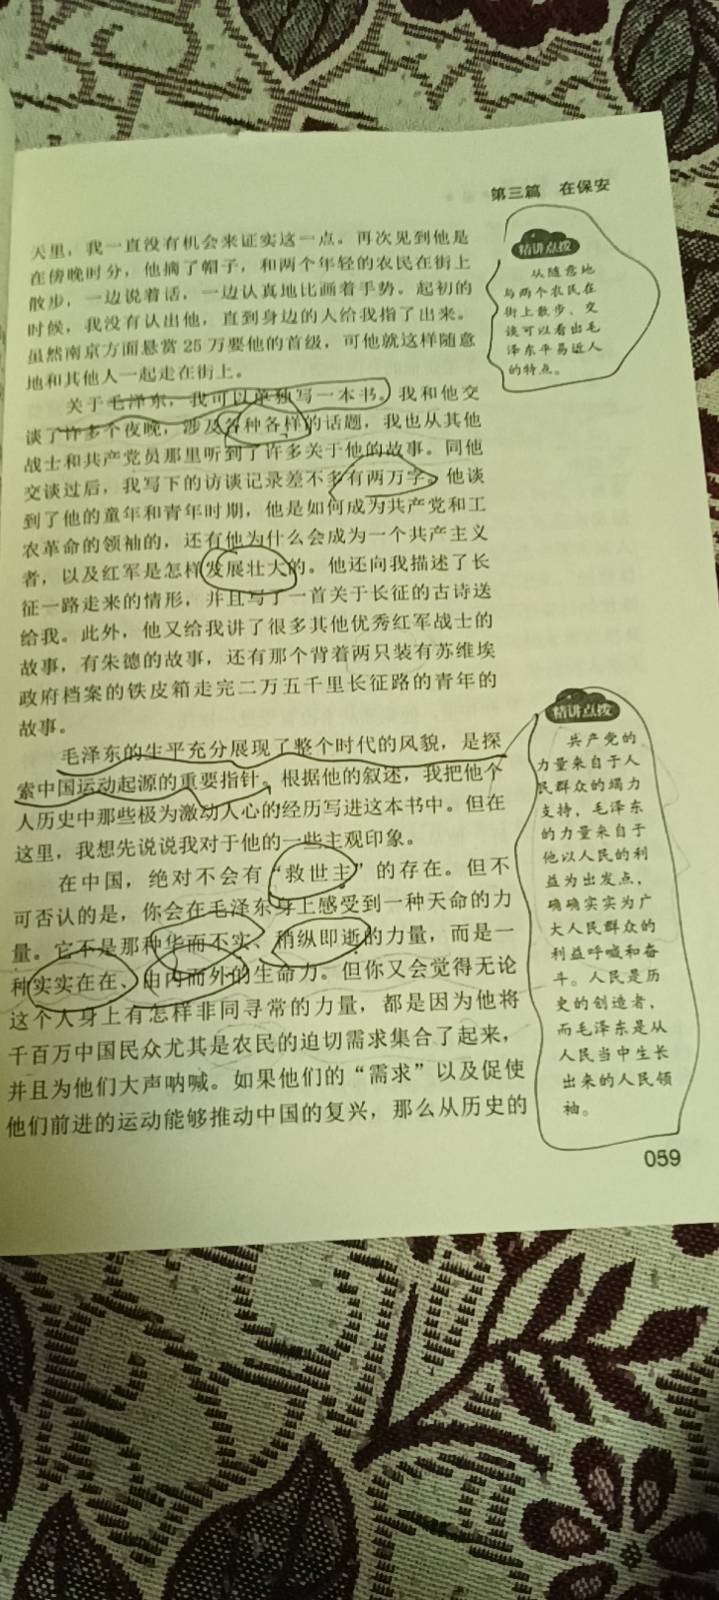 第三篇　在保安
天里，我一直没有机会来证实这一点。再次见到他是
在傍晚时分，他摘了帽子，和两个年轻的农民在街上
散步，一边说着话，一边认真地比画着手势。起初的
时候，我没有认出他，直到身边的人给我指了出来。
虽然南京方面悬赏 25 万要他的首级，可他就这样随意
地和其他人一起走在街上。
关于毛泽东，我可以单独写一本书。我和他交
谈了许多个夜晚，涉及各种各样的话题，我也从其他
战士和共产党员那里听到了许多关于他的故事。同他
交谈过后，我写下的访谈记录差不多有两万字。他谈
到了他的童年和青年时期，他是如何成为共产党和工
农革命的领袖的，还有他为什么会成为一个共产主义
者，以及红军是怎样发展壮大的。他还向我描述了长
征一路走来的情形，并且写了一首关于长征的古诗送
给我。此外，他又给我讲了很多其他优秀红军战士的
故事，有朱德的故事，还有那个背着两只装有苏维埃
政府档案的铁皮箱走完二万五千里长征路的青年的
故事。
毛泽东的生平充分展现了整个时代的风貌，是探
索中国运动起源的重要指针。根据他的叙述，我把他个
人历史中那些极为激动人心的经历写进这本书中。但在
这里，我想先说说我对于他的一些主观印象。
在中国，绝对不会有“救世主”的存在。但不
可否认的是，你会在毛泽东身上感受到一种天命的力
量。它不是那种华而不实、稍纵即逝的力量，而是一
种实实在在、由内而外的生命力。但你又会觉得无论
这个人身上有怎样非同寻常的力量，都是因为他将
千百万中国民众尤其是农民的迫切需求集合了起来，
并且为他们大声呐喊。如果他们的“需求”以及促使
他们前进的运动能够推动中国的复兴，那么从历史的
精讲点拨
从随意地
与两个农民在
街上散步、交
谈可以看出毛
泽东平易近人
的特点。
精讲点拨
共产党的
力量来自于人
民群众的竭力
支持，毛泽东
的力量来自于
他以人民的利
益为出发点，
确确实实为广
大人民群众的
利益呼喊和奋
斗。人民是历
史的创造者，
而毛泽东是从
人民当中生长
出来的人民领
袖。
059